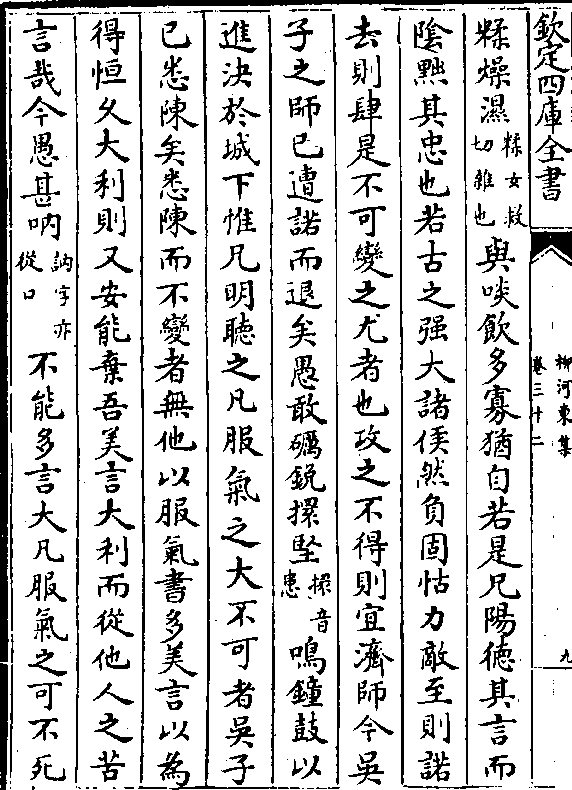 欽定四庫全書
柳河東集
卷三十二
九
糅燥濕糅女救切雜也與啖飲多寡猶自若是兄陽德其言而
陰黜其忠也若古之强大諸侯然負固怙力敵至則諾
去則肆是不可變之尤者也攻之不得則宜濟師今吳
子之師已遭諾而退矣愚敢礪銳擐堅擐音患鳴鐘鼓以
進決於城下惟兄明聽之凡服氣之大不可者吳子
已悉陳矣悉陳而不變者無他以服氣書多美言以為
得恒久大利則又安能棄吾美言大利而從他人之苦
言哉今愚甚吶訥字亦從口不能多言大凡服氣之可不死